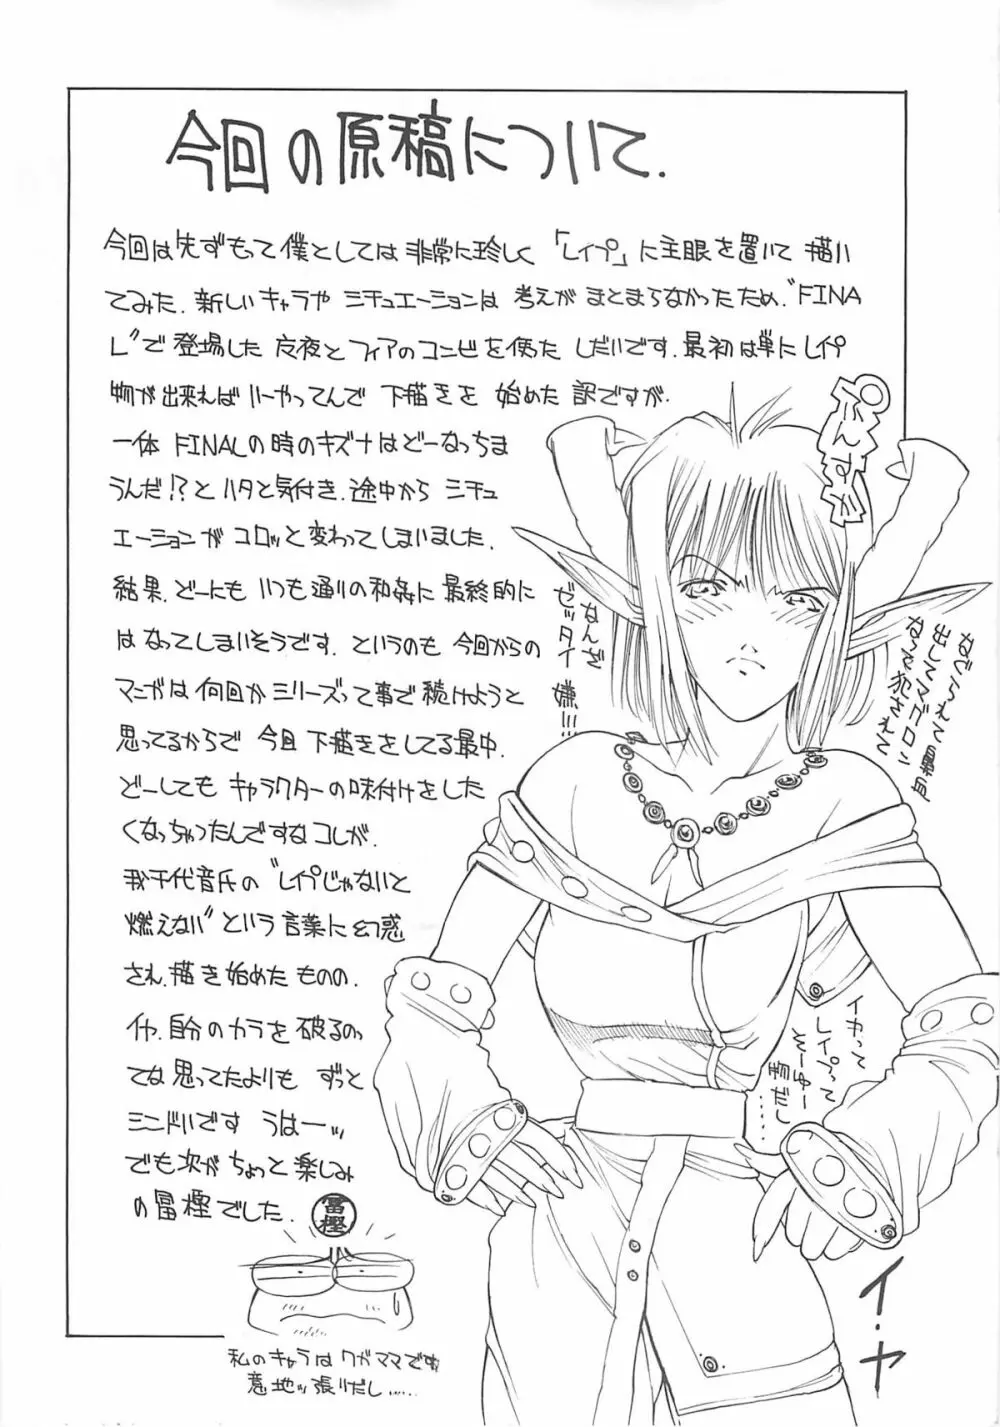 今回の原稿について.
今回は先ずもって僕としては非常に珍しく「レイプ」に主眼を置いて描い
てみた. 新しいキャラや シチュエーションは 考えが まとまらなかったため、"FINA
L"で 登場した 夜とフィアのコンビを使った しだいです. 最初は単にレイプ
物が出来ればいーやってんで 下描きを 始めた 訳ですが、
一体 FINALの時のキズナはどーなっちま
うんだ!?と ハタと気付き、途中から シチュ
エーションが コロッと変わってしまいました.
結果、どーにも いつも通りの和姦に 最終的に
はなってしまいそうです. というのも 今回からの
マンガは何回かシリーズって事で続けようと
思ってるからで 今且 下描きをしてる最中、
どーしても キャラクターの味付けをした
くなっちゃったんですなコレが.
我千代音氏の "レイプじゃないと
燃えない" という 言葉に幻惑
され、描き始めた ものの、
イヤ、自分のカラを破るのっ
ては思ってたよりも ずっと
シンドいです うはーッ
でも次が ちょっと楽しみ
の冨樫でした.
冨樫
私のキャラは ワガママです
意地ッ張りだし……
なんか
ゼッタイ
嫌!!!
なじられて 鼻血
出してマグロン
なって犯されて
イカって
レイプって
そーゆー
事だし……
イ・ヤ